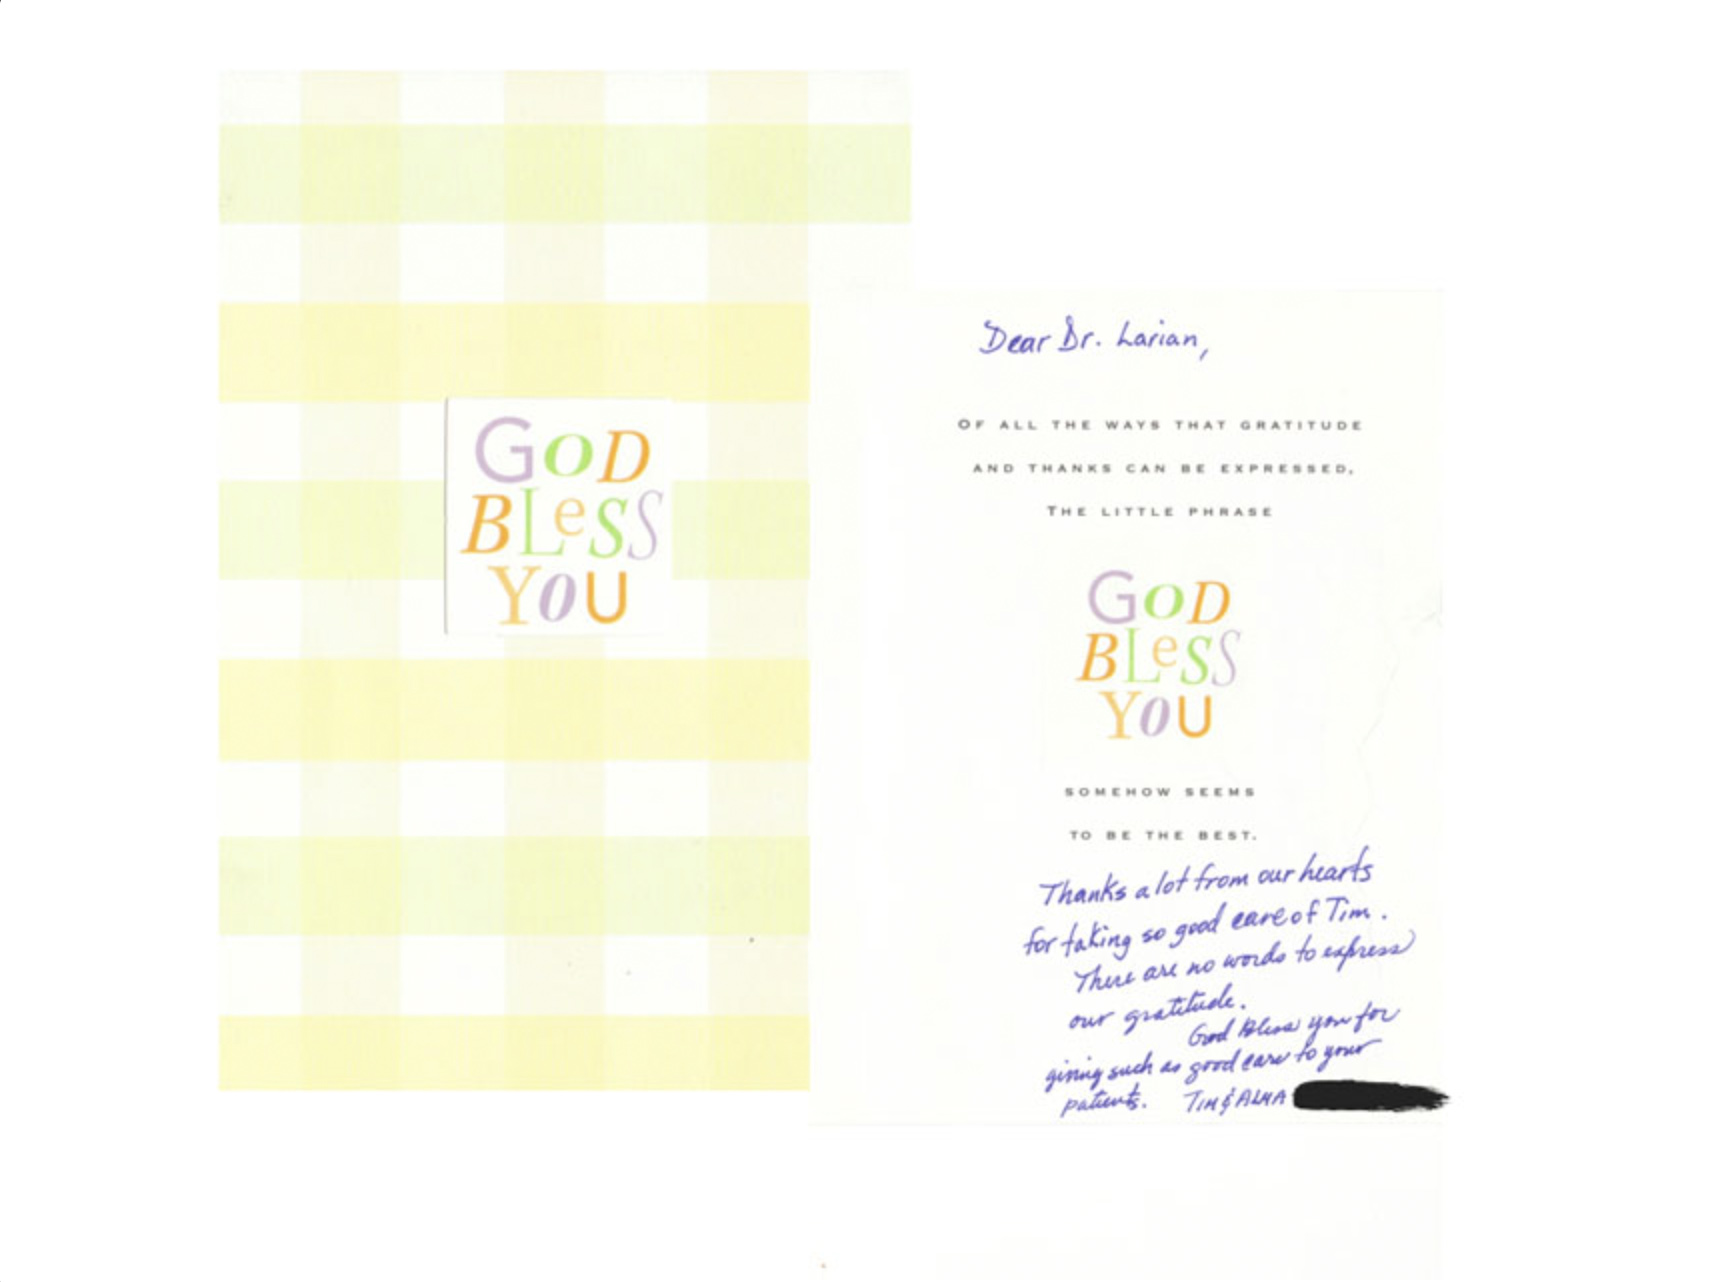 GOD
BLeSS
YOU
Dear Dr. Larian,
OF ALL THE WAYS THAT GRATITUDE
AND THANKS CAN BE EXPRESSED,
THE LITTLE PHRASE
GOD
BLeSS
YOU
SOMEHOW SEEMS
TO BE THE BEST.
Thanks a lot from our hearts
for taking so good care of Tim.
There are no words to express
our gratitude.
God Bless you for
giving such as good care to your
patients. TIM & ALMA